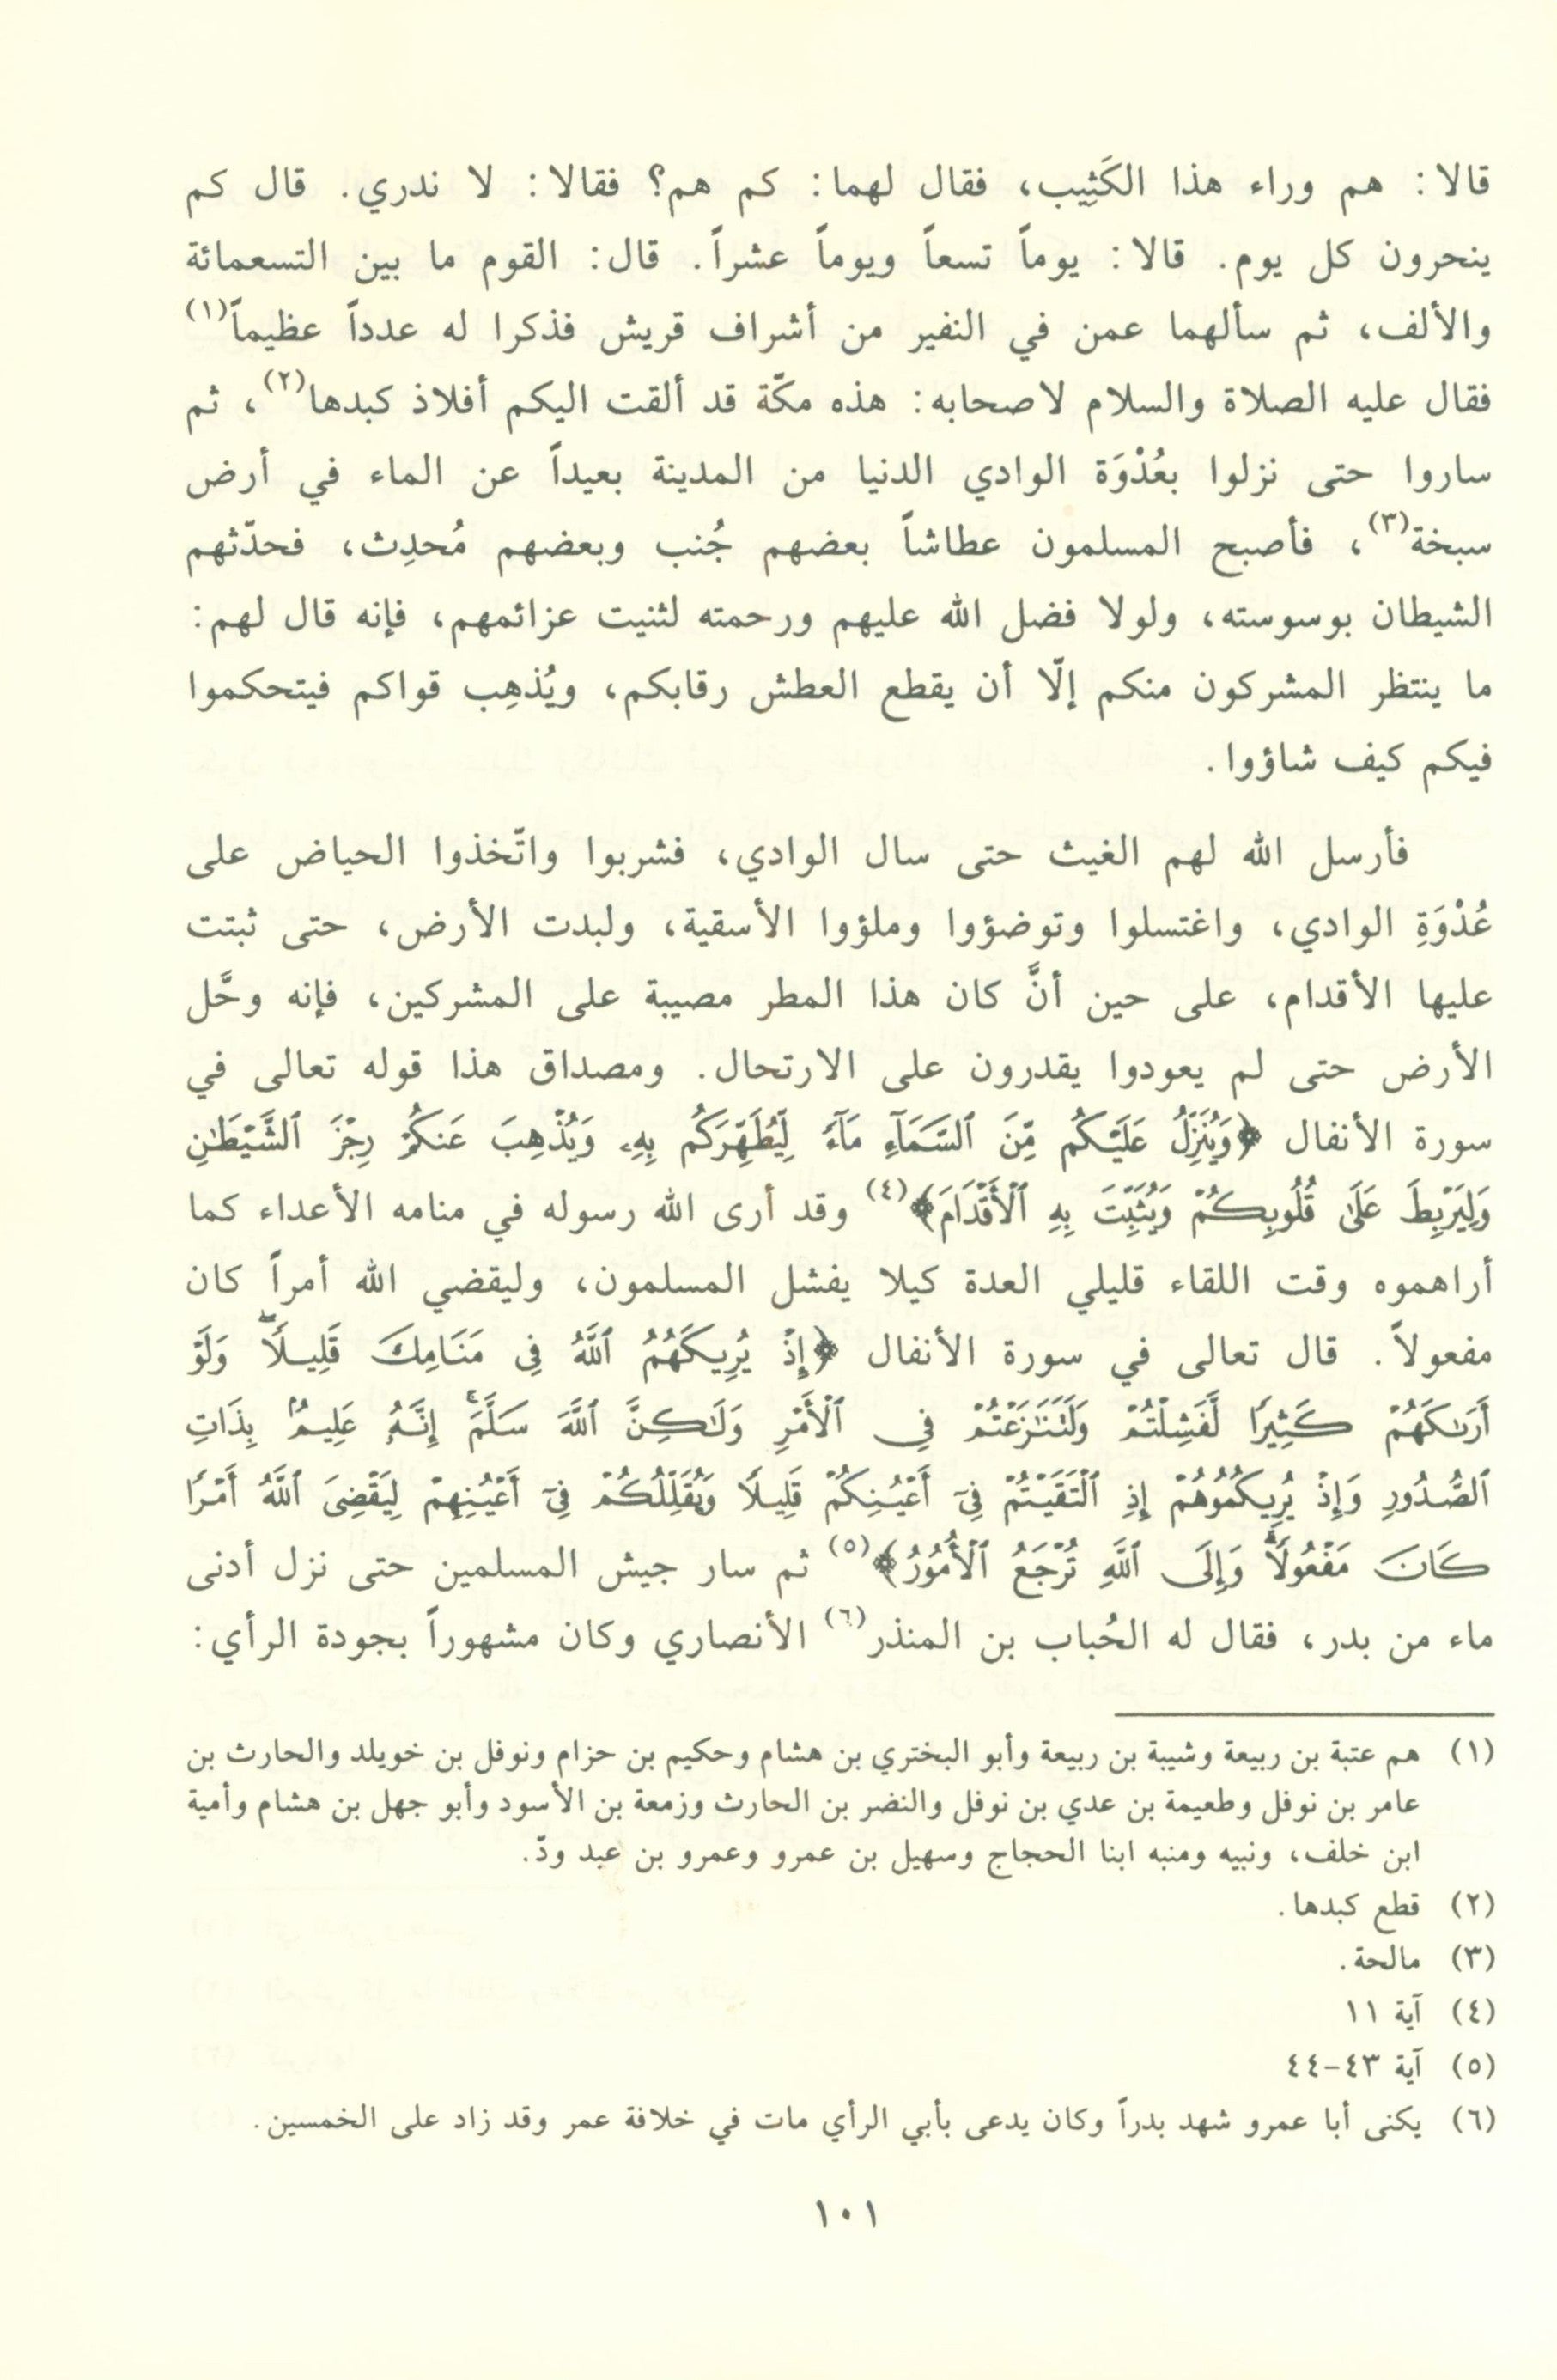 قالا: هم وراء هذا الكَثِيب، فقال لهما: كم هم؟ فقالا: لا ندري. قال كم
ينحرون كل يوم. قالا: يوماً تسعاً ويوماً عشراً. قال: القوم ما بين التسعمائة
والألف، ثم سألهما عمن في النفير من أشراف قريش فذكرا له عدداً عظيماً(١)
فقال عليه الصلاة والسلام لاصحابه: هذه مكّة قد ألقت اليكم أفلاذ كبدها(٢)، ثم
ساروا حتى نزلوا بعُدْوَة الوادي الدنيا من المدينة بعيداً عن الماء في أرض
سبخة(٣)، فأصبح المسلمون عطاشاً بعضهم جُنب وبعضهم مُحدِث، فحدّثهم
الشيطان بوسوسته، ولولا فضل الله عليهم ورحمته لثنيت عزائمهم، فإنه قال لهم:
ما ينتظر المشركون منكم إلّا أن يقطع العطش رقابكم، ويُذهِب قواكم فيتحكموا
فيكم كيف شاؤوا.
فأرسل الله لهم الغيث حتى سال الوادي، فشربوا واتّخذوا الحياض على
عُدْوَةِ الوادي، واغتسلوا وتوضؤوا وملؤوا الأسقية، ولبدت الأرض، حتى ثبتت
عليها الأقدام، على حين أنَّ كان هذا المطر مصيبة على المشركين، فإنه وحَّل
الأرض حتى لم يعودوا يقدرون على الارتحال. ومصداق هذا قوله تعالى في
سورة الأنفال ﴿وَيُنَزِّلُ عَلَيْكُم مِّنَ ٱلسَّمَآءِ مَآءً لِّيُطَهِّرَكُم بِهِۦ وَيُذْهِبَ عَنكُمْ رِجْزَ ٱلشَّيْطَٰنِ
وَلِيَرْبِطَ عَلَىٰ قُلُوبِكُمْ وَيُثَبِّتَ بِهِ ٱلْأَقْدَامَ﴾(٤) وقد أرى الله رسوله في منامه الأعداء كما
أراهموه وقت اللقاء قليلي العدة كيلا يفشل المسلمون، وليقضي الله أمراً كان
مفعولاً. قال تعالى في سورة الأنفال ﴿إِذْ يُرِيكَهُمُ ٱللَّهُ فِى مَنَامِكَ قَلِيلًاۖ وَلَوْ
أَرَىٰكَهُمْ كَثِيرًا لَّفَشِلْتُمْ وَلَتَنَٰزَعْتُمْ فِى ٱلْأَمْرِ وَلَٰكِنَّ ٱللَّهَ سَلَّمَۚ إِنَّهُۥ عَلِيمٌۢ بِذَاتِ
ٱلصُّدُورِ وَإِذْ يُرِيكُمُوهُمْ إِذِ ٱلْتَقَيْتُمْ فِىٓ أَعْيُنِكُمْ قَلِيلًا وَيُقَلِّلُكُمْ فِىٓ أَعْيُنِهِمْ لِيَقْضِىَ ٱللَّهُ أَمْرًا
كَانَ مَفْعُولًاۗ وَإِلَى ٱللَّهِ تُرْجَعُ ٱلْأُمُورُ﴾(٥) ثم سار جيش المسلمين حتى نزل أدنى
ماء من بدر، فقال له الحُباب بن المنذر(٦) الأنصاري وكان مشهوراً بجودة الرأي:
(١) هم عتبة بن ربيعة وشيبة بن ربيعة وأبو البختري بن هشام وحكيم بن حزام ونوفل بن خويلد والحارث بن
عامر بن نوفل وطعيمة بن عدي بن نوفل والنضر بن الحارث وزمعة بن الأسود وأبو جهل بن هشام وأمية
ابن خلف، ونبيه ومنبه ابنا الحجاج وسهيل بن عمرو وعمرو بن عبد ودّ.
(٢) قطع كبدها.
(٣) مالحة.
(٤) آية ١١
(٥) آية ٤٣-٤٤
(٦) يكنى أبا عمرو شهد بدراً وكان يدعى بأبي الرأي مات في خلافة عمر وقد زاد على الخمسين.
١٠١